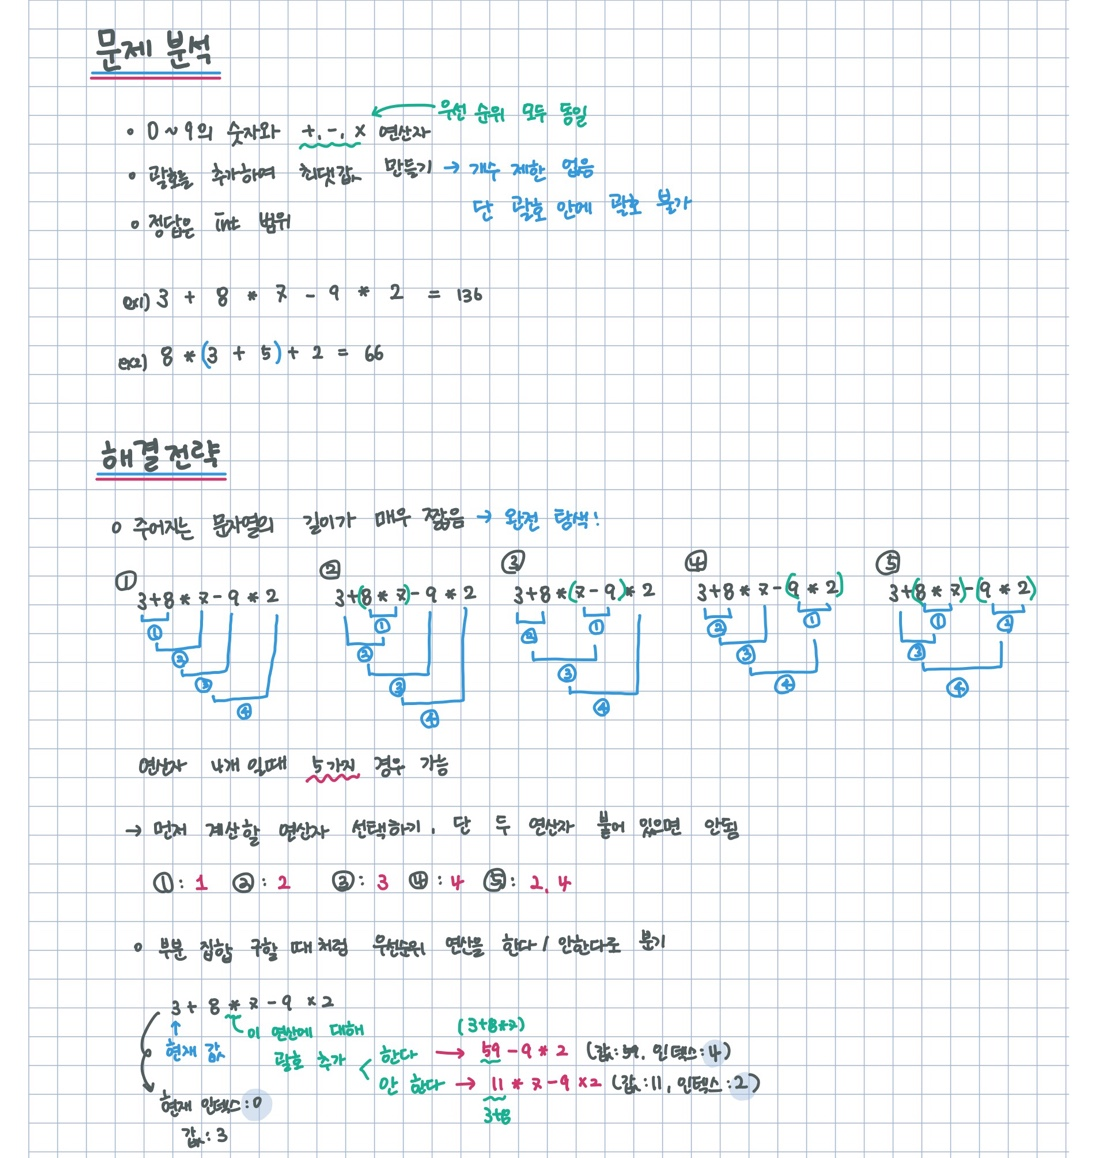 문제 분석
우선 순위 모두 동일
• 0~9의 숫자와 +, -, × 연산자
• 괄호를 추가하여 최댓값 만들기 → 개수 제한 없음
단 괄호 안에 괄호 불가
• 정답은 int 범위
ex1) 3 + 8 * 7 - 9 * 2 = 136
ex2) 8 * (3 + 5) + 2 = 66
해결전략
○ 주어지는 문자열의 길이가 매우 짧음 → 완전 탐색!
① ② ③ ④ ⑤
3+8*7-9*2 3+(8*7)-9*2 3+8*(7-9)*2 3+8*7-(9*2) 3+(8*7)-(9*2)
① ① ① ② ① ① ②
② ② ② ③ ③
③ ③ ③ ④ ④
④ ④ ④
연산자 4개 일때 5가지 경우 가능
→ 먼저 계산할 연산자 선택하기, 단 두 연산자 붙어 있으면 안됨
①: 1 ②: 2 ③: 3 ④: 4 ⑤: 2, 4
○ 부분 집합 구할 때처럼 우선순위 연산을 한다 / 안한다로 분기
3 + 8 * 7 - 9 × 2
이 연산에 대해 (3+8*7)
현재 값 괄호 추가 < 한다 → 59 - 9 * 2 (값: 59, 인덱스: 4)
안 한다 → 11 * 7 - 9 × 2 (값: 11, 인덱스: 2)
현재 인덱스: 0 3+8
값: 3